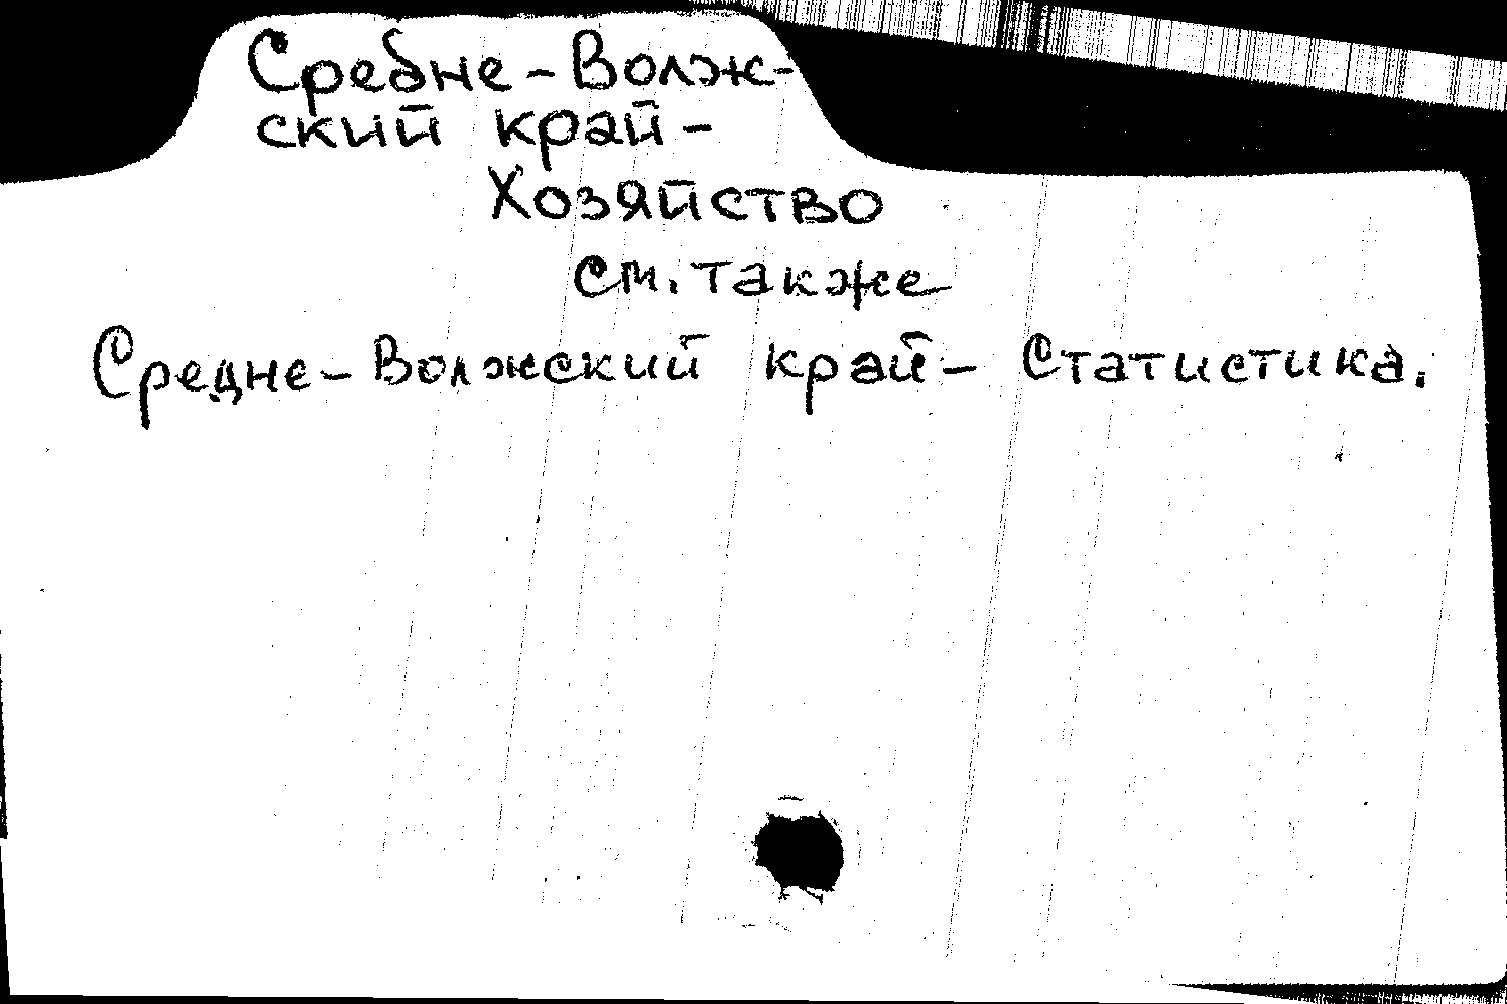 Средне-Волж-
ский край-
Хозяйство
см. также
Средне-Волжский край- Статистика.